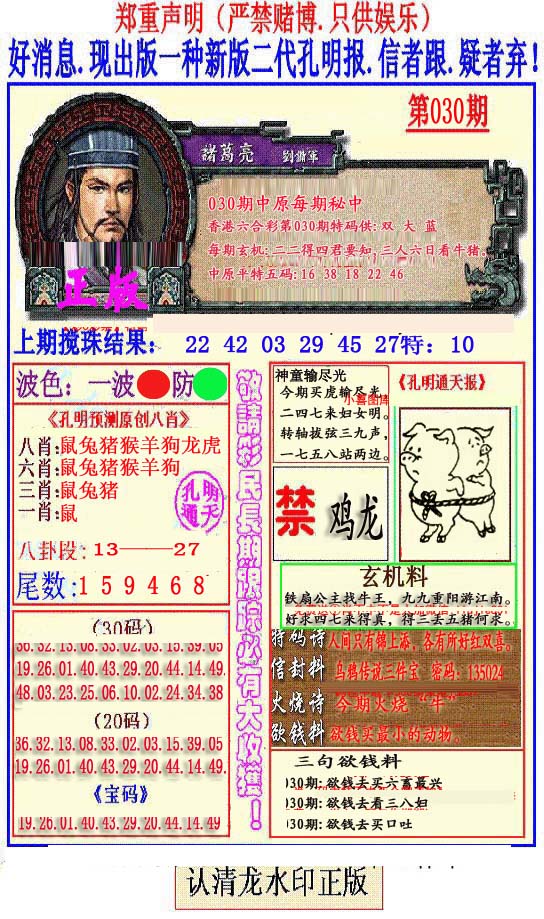 郑重声明（严禁赌博.只供娱乐）
好消息.现出版一种新版二代孔明报.信者跟.疑者弃!
第030期
諸葛亮 劉備軍
030期中原每期秘中
香港六合彩第030期特码供: 双 大 蓝
每期玄机: 二二得四君要知, 三人六日看牛猪。
中原平特五码: 16 38 18 22 46
正版
上期搅珠结果: 22 42 03 29 45 27特: 10
波色: 一波 防
《孔明预测原创八肖》
八肖:鼠兔猪猴羊狗龙虎
六肖:鼠兔猪猴羊狗
三肖:鼠兔猪
一肖:鼠
孔明通天
八卦段: 13——27
尾数:159468
(30码)
36.32.13.08.33.02.03.15.39.05
19.26.01.40.43.29.20.44.14.49
48.03.23.25.06.10.02.24.34.38
(20码)
36.32.13.08.33.02.03.15.39.05
19.26.01.40.43.29.20.44.14.49
《宝码》
19.26.01.40.43.29.20.44.14.49
敬請彩民長期跟踪必有大收獲!
神童输尽光
今期买虎输尽光
二四七来妇女明。
转轴拔弦三九声,
一七五八站两边。
《孔明通天报》
禁 鸡龙
玄机料
铁扇公主找牛王, 九九重阳游江南。
好求四七来得真, 得二去五猪何求。
特码诗 人间只有锦上添, 各有所好红双喜。
信封料 乌鸦传说三件宝 密码: 135024
火烧诗 今期火烧 “牛”
欲钱料 欲钱买最小的动物。
三句欲钱料
030期: 欲钱去买六畜最兴
030期: 欲钱去看三八妇
030期: 欲钱去买口吐
认清龙水印正版